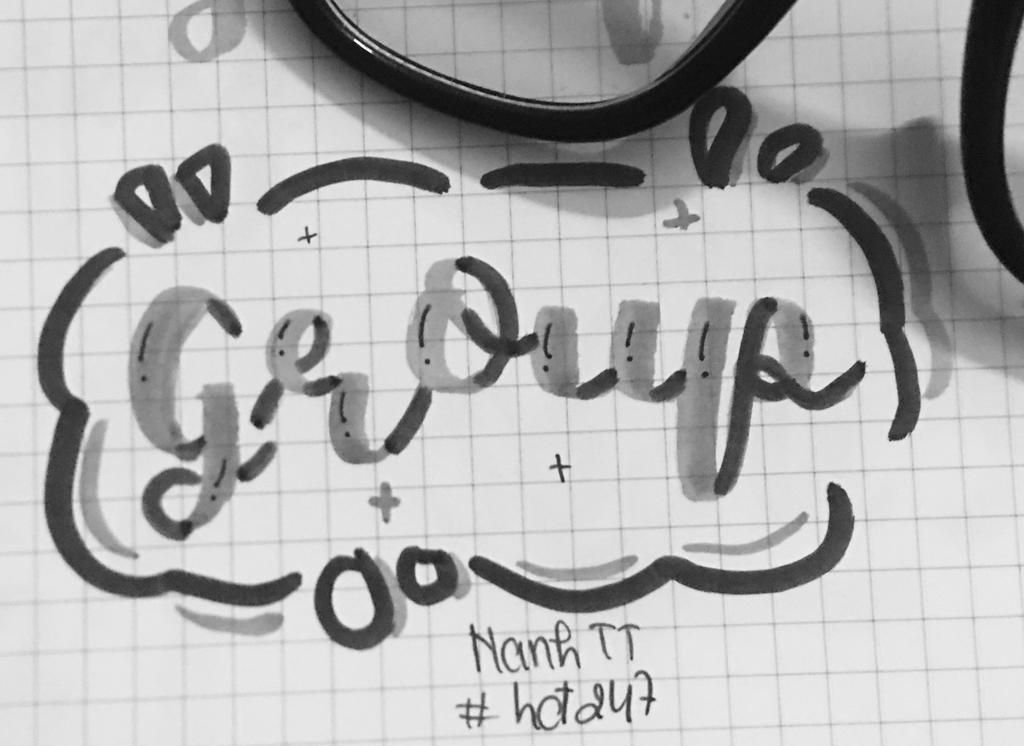 Group
Hanh TT
# hot247